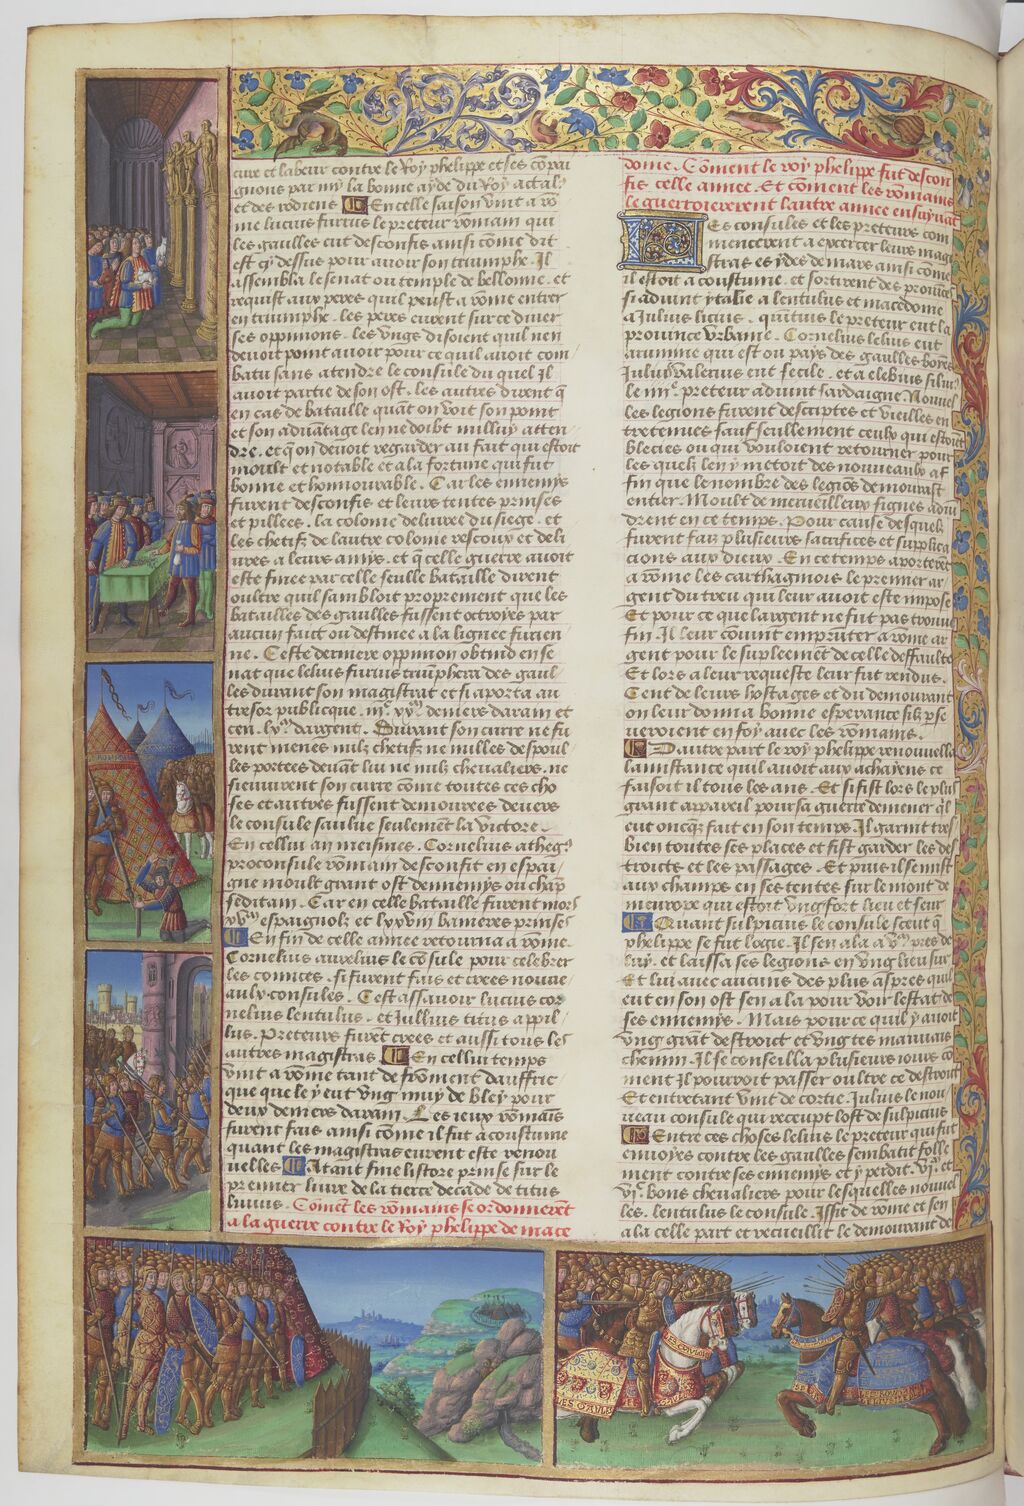 cure et labeur contre le Roy phelippe et ses cõpai
gnons par my la bonne ayde du Roy actal⁹
et des rodiens En celle saison vint a rõ
me lucius furius le preteur rõmain qui
les gaulles eut desconfis ainsi cõme dit
est cy dessus pour auoir son triumphe. Il
assembla le senat ou temple de bellonne. et
requist aux peres quil peust a rõme entrer
en triumphe. les peres eurent sur ce diuer
ses oppinions. les vngs disoient quil nen
deuoit point auoir pour ce quil auoit com
batu sans atendre le consule du quel Il
auoit partie de son ost. les autres dirent q̃
en cas de bataille quãt on voit son point
et son aduãtage len ne doibt nulluy atten
dre. et q̃ on deuoit regarder au fait qui estoit
moult et notable et a la fortune qui fut
bonne et honnourable. Car les ennemys
furent desconfis et leurs tentes prinses
et pillees. la colonie deliuree du siege. et
les chetifz de lautre colonie rescoux et deli
ures a leurs amys. et q̃ celle guerre auoit
este finee par celle seulle bataille dirent
oultre quil sambloit proprement que les
batailles des gaulles fussent octroyes par
aucun faict ou destinee a la lignee furien
ne. Ceste derniere oppinion obtind en se
nat que lelius furius triumphera des gaul
les durant son magistrat et si aporta au
tresor publicque. deniers darain et
cen. dargent. Durant son curre ne fu
rent menes nulz chetifz ne nulles despoul
les portees deuãt lui ne nulz cheualiers. ne
sieuuirent son curre cõme toutes ces cho
ses et autres fussent demourees deuers
le consule saulue seulemẽt la victore.
En cellui an meismes. Cornelius atheg⁹
proconsule rõmain desconfit en espai
gne moult grant ost dennemys ou chãp
seditam. Car en celle bataille furent mors
espaignolz et lxxviii banieres prinses
En fin de celle annee retourna a rõme
Cornelius aurelius le cõsule pour celebrer
les comices. si furent fais et crees nouue
aulx consules. Cest assauoir lucius cor
nelius lentulus. et Jullius titius appil
lus. Preteurs furẽt crees et aussi tous les
autres magistras En cellui temps
vint a rõme tant de fromẽt dauffric
que que le y eut vng muy de bley pour
deux deniers darain. Les ieux rõmais
furent fais ainsi cõme il fut a coustume
quant les magistras eurent este renou
uelles Atant fine listore prinse sur le
premier liure de la tierce decade de titus
liuius. Cõmẽt les rõmains se ordonnerẽt
a la guerre contre le Roy phelippe de mace
donie. Cõment le roy phelippe fut descon
fis celle annee. Et cõment les rõmains
le guerroierent lautre annee ensuyuãt
Les consules et les preteurs com
mencerent a exercer leurs magi
stras es ydes de mars ainsi cõme
il estoit a coustume. et sortirent des prouices
si aduint ytalie a lentulus et macedonie
a Julius licius. quãtius le preteur eut la
prouince vrbaine. Cornelius lelius eut
arimine qui est ou pays des gaulles boyes
Julius valerius eut secile. et a elebius silui⁹
le iiiiᵉ. preteur aduint sardaigne. Nouuel
les legions furent descriptes et vieilles en
tretenues sauf seullement ceulx qui estoiẽt
blecies ou qui vouloient retourner pour
les quelz len y metoit des nouueaulx af
fin que le nombre des legiõs demourast
entier. Moult de merueilleux signes adui
drent en ce temps. Pour cause desquelz
furent faiz plusieurs sacrifices et supplica
cions aux dieux. En ce temps aporterẽt
a rõme les carthaginois le premier ar
gent du treu qui leur auoit este impose
Et pour ce que largent ne fut pas trouue
fin. Il leur cõuint emprũter a rõme ar
gent pour le supleemẽt de celle deffaulte
Et lors a leur requeste leur fut rendus.
Cent de leurs hostages et du demourant
on leur donna bonne esperance silz pse
ueroient en foy auec les rõmains.
Dautre part le roy phelippe renouuella
la instance quil auoit aux achayens ce
faisoit il tous les ans. Et si fist lors le plus
grant appareil pour sa guerre demener q̃l
eut oncq̃z fait en son temps. Il garnit tres
bien toutes ses places et fist garder les de
troicts et les passages. Et puis il se mist
aux champs en ses tentes sur le mont de
meurope qui estoit vng fort lieu et seur
Quant sulpicius le consule sceut q̃
phelippe se fut logie. Il sen ala a pres de
luy. et laissa ses legions en vng lieu sur
Et lui auec aucuns des plus aspres quil
eut en son ost sen ala pour voir lestat de
ses ennemys. Mais pour ce quil y auoit
vng grãt destroict et vng tres mauuais
chemin. Il se conseilla plusieurs iours cõ
ment Il pourroit passer oultre ce destroit
Et entretant vint de cortie. Julius le nou
ueau consule qui receupt lost de sulpicius
Entre ces choses lelius le preteur qui fut
enuoyes contre les gaulles sembatit folle
ment contre ses ennemys et y perdit. et
bons cheualiers pour lesquelles nouuel
les. lentulus le consule. Issit de rome et sen
ala celle part et recueillit le demourant de